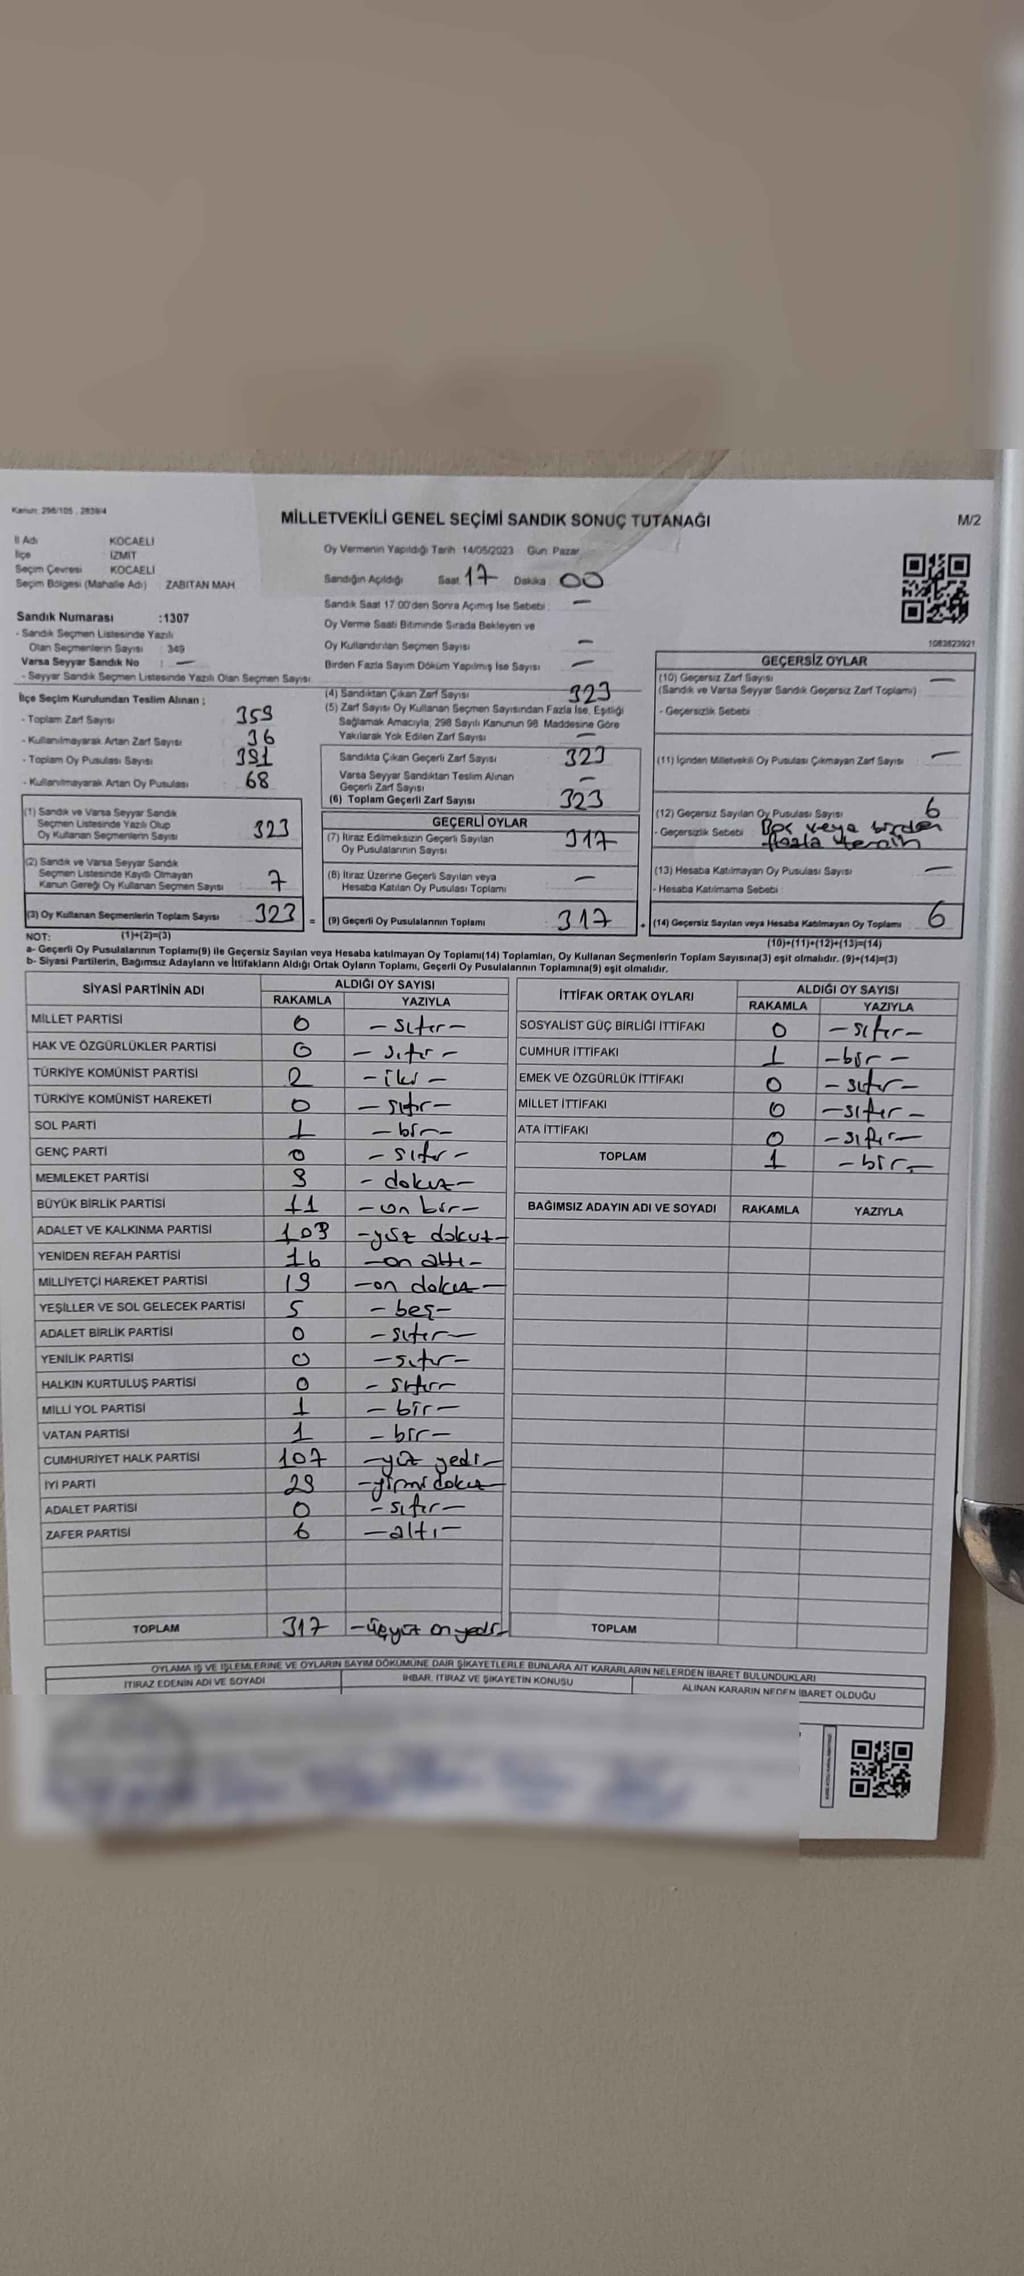 Kanun: 298/105 , 2839/4
MİLLETVEKİLİ GENEL SEÇİMİ SANDIK SONUÇ TUTANAĞI
M/2
İl Adı KOCAELİ
İlçe İZMİT
Seçim Çevresi KOCAELİ
Seçim Bölgesi (Mahalle Adı) ZABITAN MAH
Sandık Numarası :1307
- Sandık Seçmen Listesinde Yazılı
Olan Seçmenlerin Sayısı 349
Varsa Seyyar Sandık No : —
- Seyyar Sandık Seçmen Listesinde Yazılı Olan Seçmen Sayısı:
Oy Vermenin Yapıldığı Tarih 14/05/2023 Gün Pazar
Sandığın Açıldığı Saat 17 Dakika 00
Sandık Saat 17.00'den Sonra Açımış İse Sebebi : —
Oy Verme Saati Bitiminde Sırada Bekleyen ve
Oy Kullandırılan Seçmen Sayısı —
Birden Fazla Sayım Döküm Yapılmış İse Sayısı —
1083823921
İlçe Seçim Kurulundan Teslim Alınan ;
- Toplam Zarf Sayısı 359
- Kullanılmayarak Artan Zarf Sayısı 36
- Toplam Oy Pusulası Sayısı 391
- Kullanılmayarak Artan Oy Pusulası 68
(1) Sandık ve Varsa Seyyar Sandık
Seçmen Listesinde Yazılı Olup
Oy Kullanan Seçmenlerin Sayısı 323
(2) Sandık ve Varsa Seyyar Sandık
Seçmen Listesinde Kaydı Olmayan
Kanun Gereği Oy Kullanan Seçmen Sayısı 7
(3) Oy Kullanan Seçmenlerin Toplam Sayısı 323 =
(1)+(2)=(3)
(4) Sandıktan Çıkan Zarf Sayısı 323
(5) Zarf Sayısı Oy Kullanan Seçmen Sayısından Fazla İse, Eşitliği
Sağlamak Amacıyla, 298 Sayılı Kanunun 98. Maddesine Göre
Yakılarak Yok Edilen Zarf Sayısı —
Sandıkta Çıkan Geçerli Zarf Sayısı 323
Varsa Seyyar Sandıktan Teslim Alınan
Geçerli Zarf Sayısı —
(6) Toplam Geçerli Zarf Sayısı 323
GEÇERLİ OYLAR
(7) İtiraz Edilmeksizin Geçerli Sayılan
Oy Pusulalarının Sayısı 317
(8) İtiraz Üzerine Geçerli Sayılan veya
Hesaba Katılan Oy Pusulası Toplamı —
(9) Geçerli Oy Pusulalarının Toplamı 317 +
GEÇERSİZ OYLAR
(10) Geçersiz Zarf Sayısı —
(Sandık ve Varsa Seyyar Sandık Geçersiz Zarf Toplamı)
- Geçersizlik Sebebi :
(11) İçinden Milletvekili Oy Pusulası Çıkmayan Zarf Sayısı —
(12) Geçersiz Sayılan Oy Pusulası Sayısı 6
- Geçersizlik Sebebi Boş veya birden
fazla tercih
(13) Hesaba Katılmayan Oy Pusulası Sayısı —
- Hesaba Katılmama Sebebi :
(14) Geçersiz Sayılan veya Hesaba Katılmayan Oy Toplamı 6
(10)+(11)+(12)+(13)=(14)
NOT:
a- Geçerli Oy Pusulalarının Toplamı(9) ile Geçersiz Sayılan veya Hesaba katılmayan Oy Toplamı(14) Toplamları, Oy Kullanan Seçmenlerin Toplam Sayısına(3) eşit olmalıdır. (9)+(14)=(3)
b- Siyasi Partilerin, Bağımsız Adayların ve İttifakların Aldığı Ortak Oyların Toplamı, Geçerli Oy Pusulalarının Toplamına(9) eşit olmalıdır.
SİYASİ PARTİNİN ADI ALDIĞI OY SAYISI
RAKAMLA YAZIYLA
MİLLET PARTİSİ 0 — sıfır —
HAK VE ÖZGÜRLÜKLER PARTİSİ 0 — sıfır —
TÜRKİYE KOMÜNİST PARTİSİ 2 — iki —
TÜRKİYE KOMÜNİST HAREKETİ 0 — sıfır —
SOL PARTİ 1 — bir —
GENÇ PARTİ 0 — sıfır —
MEMLEKET PARTİSİ 9 — dokuz —
BÜYÜK BİRLİK PARTİSİ 11 — on bir —
ADALET VE KALKINMA PARTİSİ 109 — yüz dokuz —
YENİDEN REFAH PARTİSİ 16 — on altı —
MİLLİYETÇİ HAREKET PARTİSİ 19 — on dokuz —
YEŞİLLER VE SOL GELECEK PARTİSİ 5 — beş —
ADALET BİRLİK PARTİSİ 0 — sıfır —
YENİLİK PARTİSİ 0 — sıfır —
HALKIN KURTULUŞ PARTİSİ 0 — sıfır —
MİLLİ YOL PARTİSİ 1 — bir —
VATAN PARTİSİ 1 — bir —
CUMHURİYET HALK PARTİSİ 107 — yüz yedi —
İYİ PARTİ 29 — yirmi dokuz —
ADALET PARTİSİ 0 — sıfır —
ZAFER PARTİSİ 6 — altı —
TOPLAM 317 — üçyüz on yedi —
İTTİFAK ORTAK OYLARI ALDIĞI OY SAYISI
RAKAMLA YAZIYLA
SOSYALİST GÜÇ BİRLİĞİ İTTİFAKI 0 — sıfır —
CUMHUR İTTİFAKI 1 — bir —
EMEK VE ÖZGÜRLÜK İTTİFAKI 0 — sıfır —
MİLLET İTTİFAKI 0 — sıfır —
ATA İTTİFAKI 0 — sıfır —
TOPLAM 1 — bir —
BAĞIMSIZ ADAYIN ADI VE SOYADI RAKAMLA YAZIYLA
TOPLAM
OYLAMA İŞ VE İŞLEMLERİNE VE OYLARIN SAYIM DÖKÜMÜNE DAİR ŞİKAYETLERLE BUNLARA AİT KARARLARIN NELERDEN İBARET BULUNDUKLARI
İTİRAZ EDENİN ADI VE SOYADI İHBAR, İTİRAZ VE ŞİKAYETİN KONUSU ALINAN KARARIN NEDEN İBARET OLDUĞU